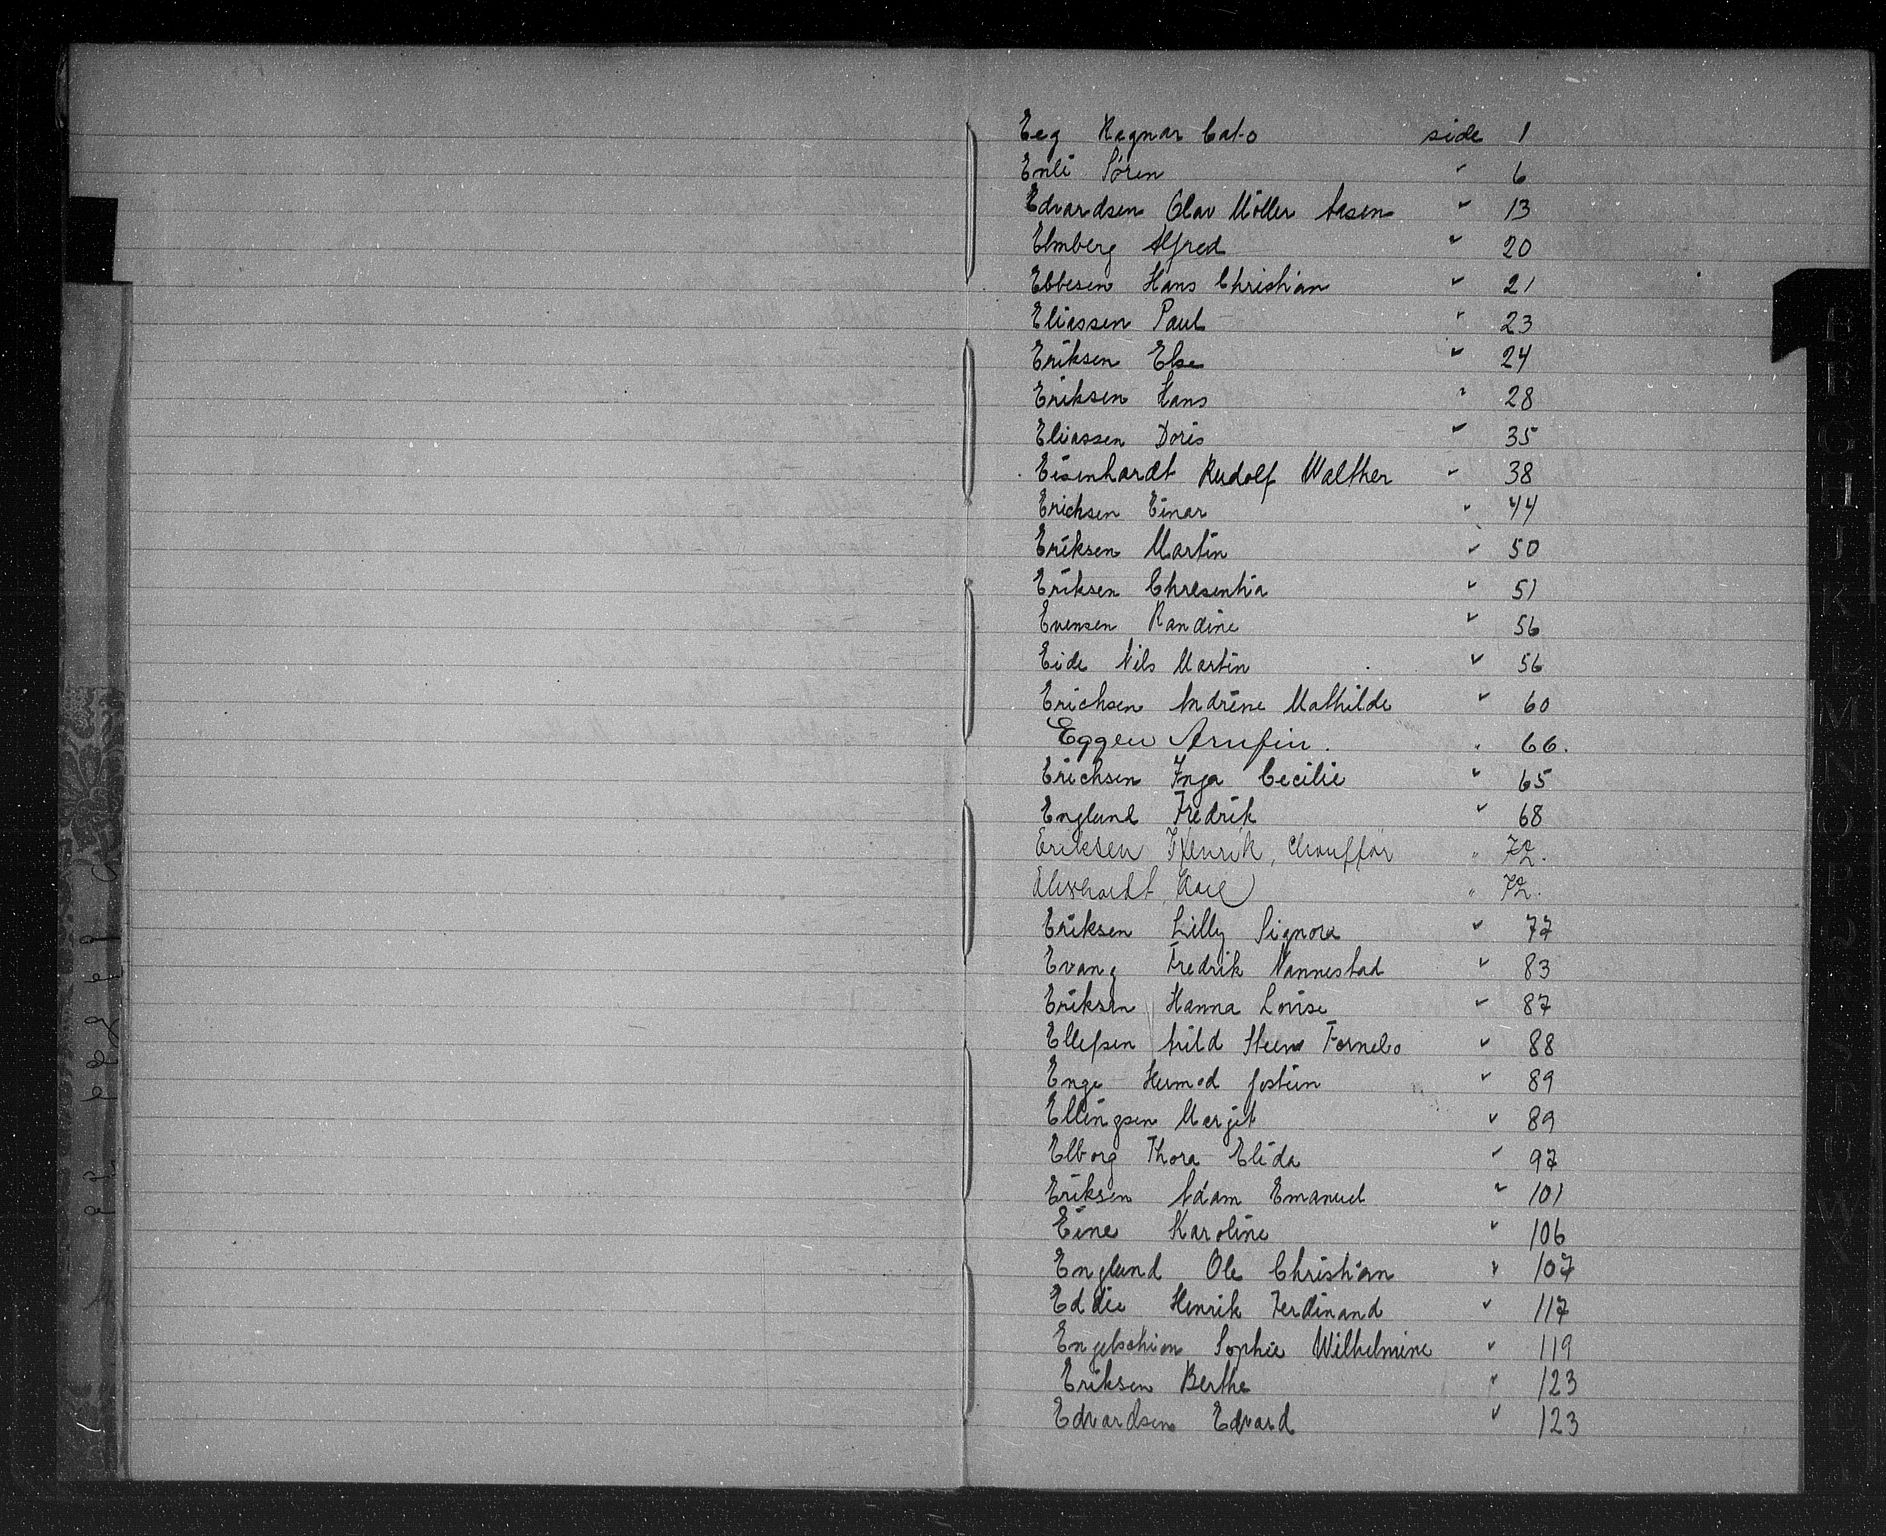 Eeg Ragnar Cato side 1
Enli Sören " 6
Edvardsen Olav Möller Aasen " 13
Elmberg Alfred " 20
Ebbesen Hans Christian " 21
Eliassen Paul " 23
Eriksen Else " 24
Eriksen Hans " 28
Eliassen Doris " 35
Eisenhardt Rudolf Walther " 38
Erichsen Einar " 44
Eriksen Martin " 50
Eriksen Chresentia " 51
Evensen Randine " 56
Eide Nils Martin " 56
Erichsen Andrine Mathilde " 60
Eggen Arnfin. " 66.
Erichsen Inga Cecilie " 65
Englund Fredrik " 68
Eriksen Henrik, Chauffør " 72.
Karl " 72.
Eriksen Lilly Signora " 77
Evang Fredrik Nannestad " 83
Eriksen Hanna Lovise " 87
Ellefsen Arild Steen Fornebo " 88
Enge Hermod Jostein " 89
Ellingsen Margit " 89
Elborg Thora Elida " 97
Eriksen Adam Emanuel " 101
Eine Karoline " 106
Englund Ole Christian " 107
Eddie Henrik Ferdinand " 117
Engelschiøn Sophie Wilhelmine " 119
Eriksen Berthe " 123
Edvardsen Edvard " 123